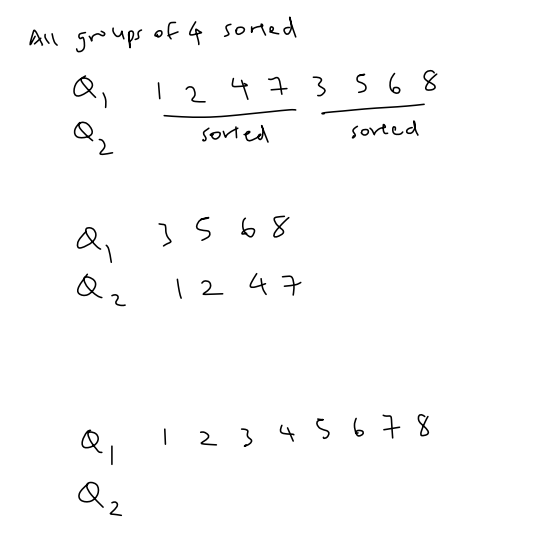 All groups of 4 sorted
Q1 1 2 4 7 3 5 6 8
Q2 sorted sorted
Q1 3 5 6 8
Q2 1 2 4 7
Q1 1 2 3 4 5 6 7 8
Q2